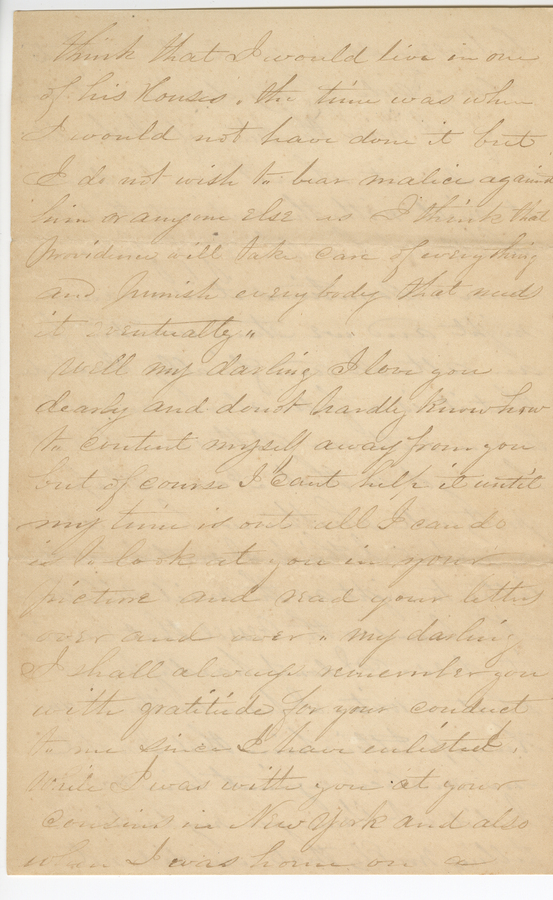 think that I would live in one
of his Houses. the time was when
I would not have done it but
I do not wish to bear malice against
him or anyone else as I think that
Providence will take care of everything
and punish everybody that needs
it eventually"
Well my darling I love you
dearly and do not hardly know how
to content myself away from you
but of course I cant help it until
my time is out all I can do
is to look at you in your
picture and read your letters
over and over " my darling
I shall always remember you
with gratitude for your conduct
to me since I have enlisted.
while I was with you at your
cousins in New York and also
when I was home on a